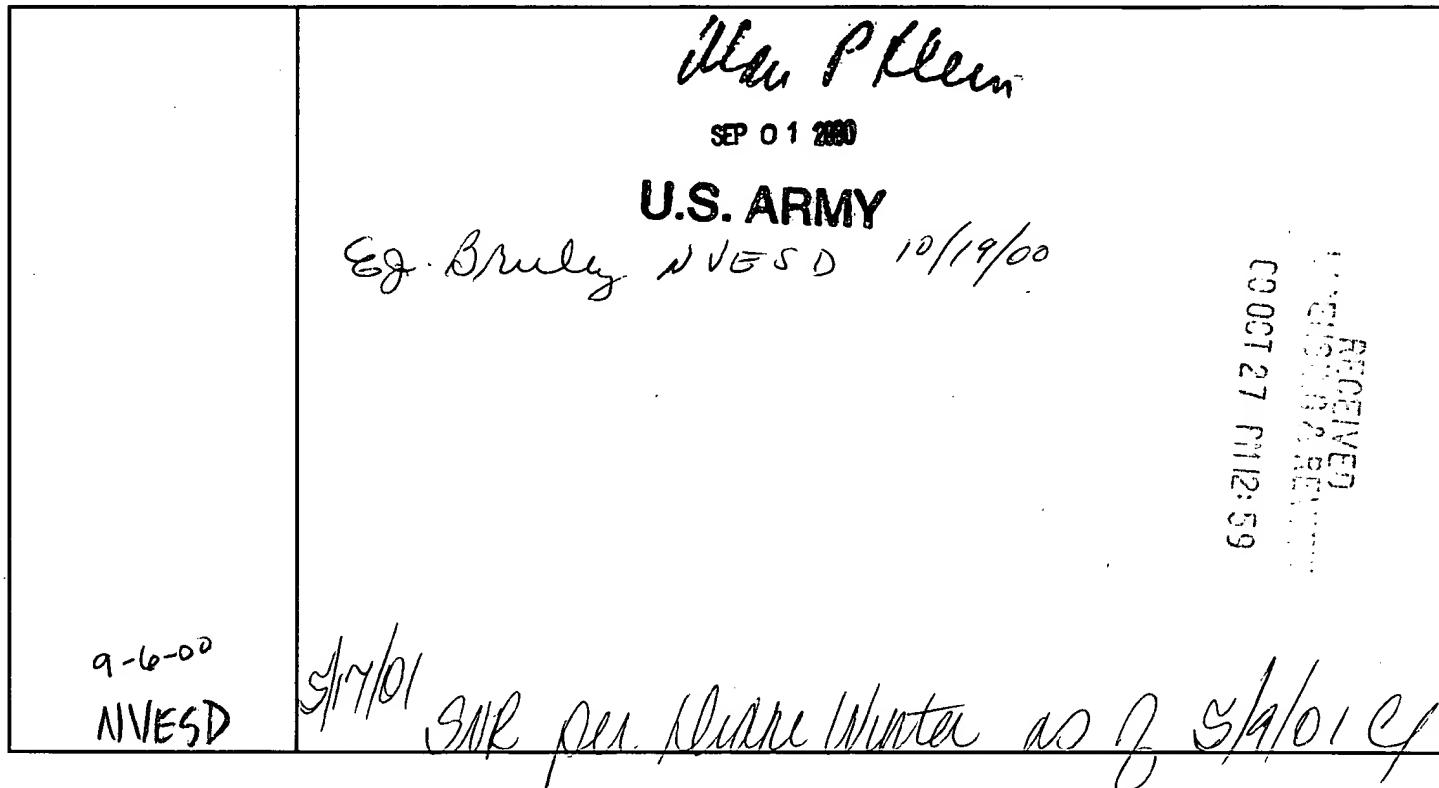 Alan P Klein
SEP 01 2000
U.S. ARMY
NVESD 10/19/00
RECEIVED
00 OCT 27 PM 12:59
9-6-00
NVESD
5/17/01 SNR per. Diane Winter as of 5/9/01